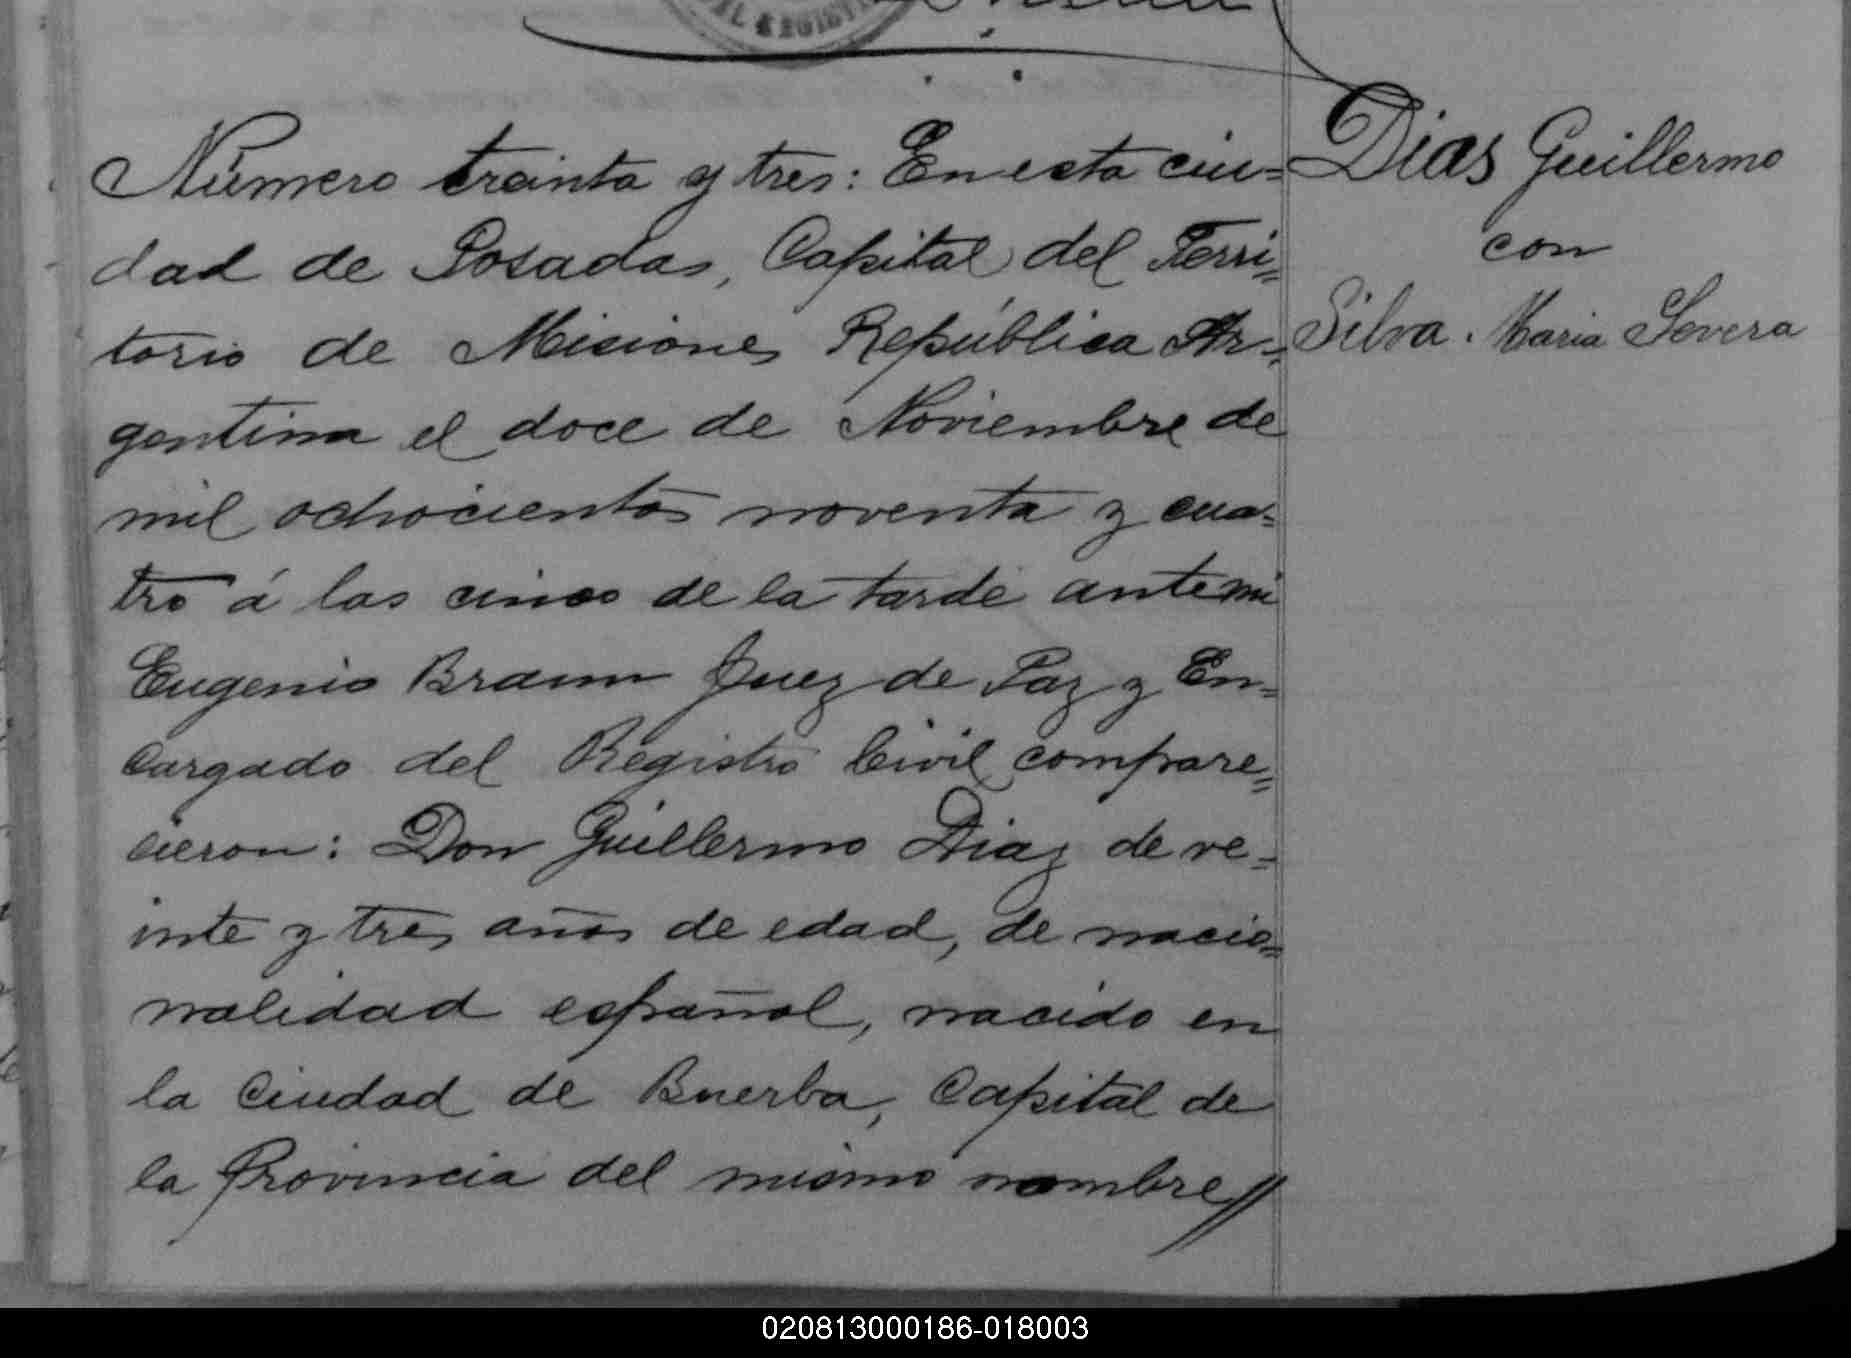 Número treinta y tres: En esta ciu=
dad de Posadas, Capital del Terri=
torio de Misiones República Ar=
gentina el doce de Noviembre de
mil ochocientos noventa y cua=
tro á las cinco de la tarde ante mi
Eugenio Braun Juez de Paz y En=
cargado del Registro Civil compare=
cieron: Don Guillermo Diaz de ve=
inte y tres años de edad, de nacio=
nalidad español, nacido en
la Ciudad de Buerba, Capital de
la Provincia del mismo nombre//
Dias Guillermo
con
Silva. Maria Severa
020813000186-018003